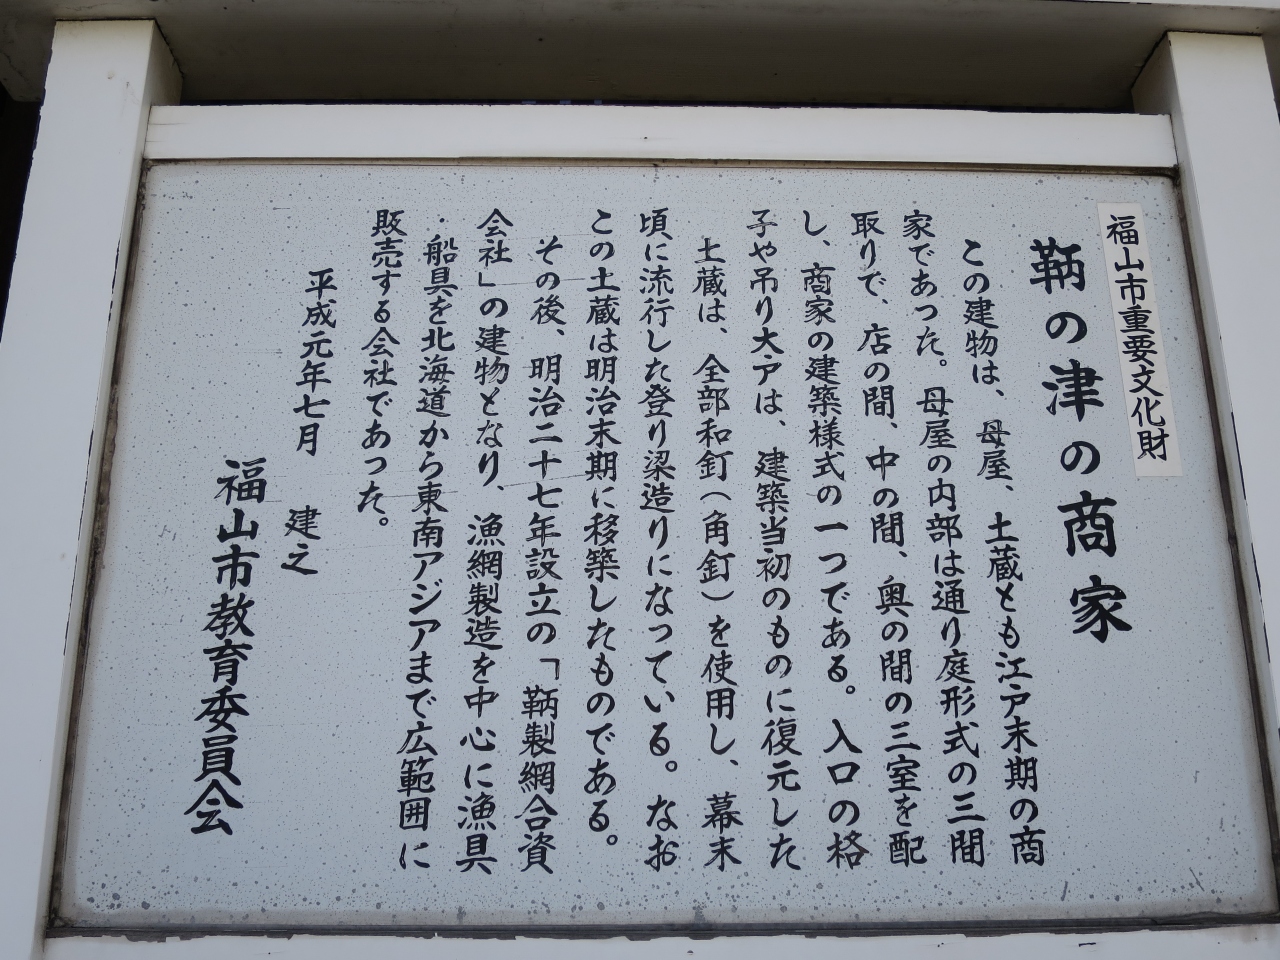 福山市重要文化財
鞆の津の商家
この建物は、母屋、土蔵とも江戸末期の商
家であった。母屋の内部は通り庭形式の三間
取りで、店の間、中の間、奥の間の三室を配
し、商家の建築様式の一つである。入口の格
子や吊り大戸は、建築当初のものに復元した
土蔵は、全部和釘(角釘)を使用し、幕末
頃に流行した登り梁造りになっている。なお
この土蔵は明治末期に移築したものである。
その後、明治二十七年設立の「鞆製網合資
会社」の建物となり、漁網製造を中心に漁具
・船具を北海道から東南アジアまで広範囲に
販売する会社であった。
平成元年七月
建之
福山市教育委員会